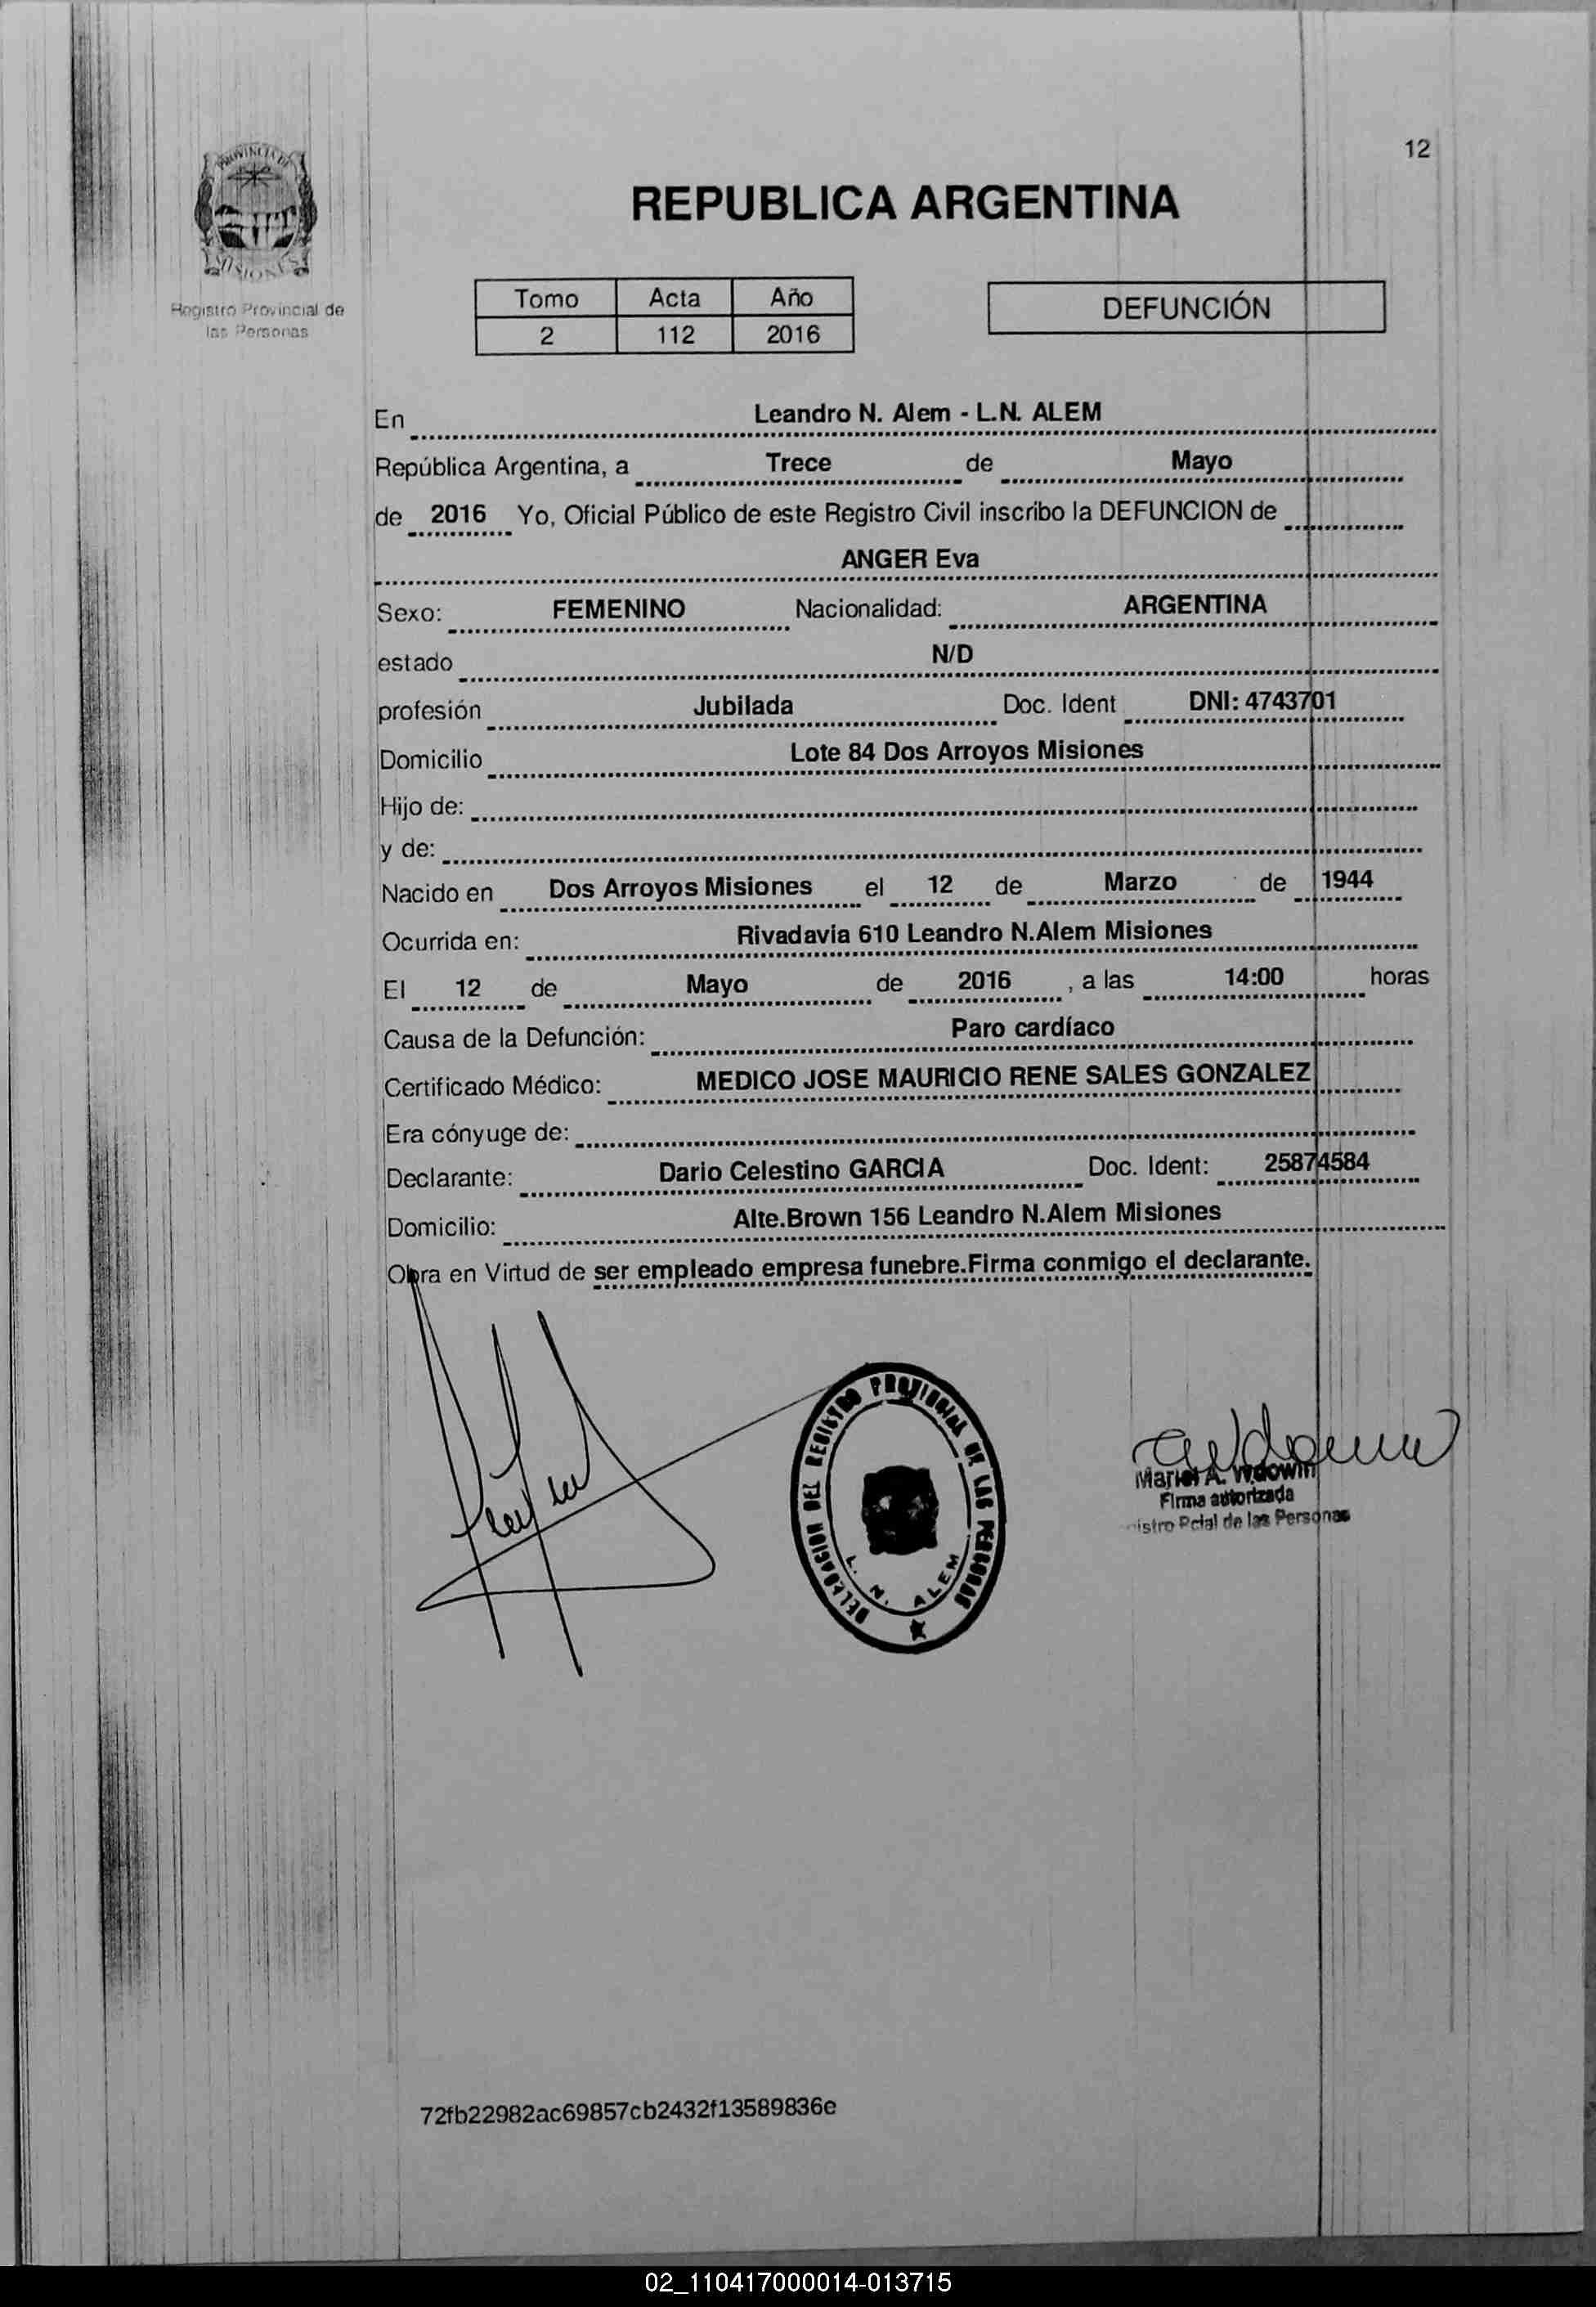 12
PROVINCIA DE
MISIONES
Registro Provincial de
las Personas
REPUBLICA ARGENTINA
Tomo Acta Año
2 112 2016
DEFUNCIÓN
En Leandro N. Alem - L.N. ALEM
República Argentina, a Trece de Mayo
de 2016 Yo, Oficial Público de este Registro Civil inscribo la DEFUNCION de
ANGER Eva
Sexo: FEMENINO Nacionalidad: ARGENTINA
estado N/D
profesión Jubilada Doc. Ident DNI: 4743701
Domicilio Lote 84 Dos Arroyos Misiones
Hijo de:
y de:
Nacido en Dos Arroyos Misiones el 12 de Marzo de 1944
Ocurrida en: Rivadavia 610 Leandro N.Alem Misiones
El 12 de Mayo de 2016 , a las 14:00 horas
Causa de la Defunción: Paro cardíaco
Certificado Médico: MEDICO JOSE MAURICIO RENE SALES GONZALEZ
Era cónyuge de:
Declarante: Dario Celestino GARCIA Doc. Ident: 25874584
Domicilio: Alte.Brown 156 Leandro N.Alem Misiones
Obra en Virtud de ser empleado empresa funebre.Firma conmigo el declarante.
DELEGACION DEL REGISTRO PROVINCIAL DE LAS PERSONAS
L. N. ALEM
Mariel A.
Firma autorizada
istro Pcial de las Personas
72fb22982ac69857cb2432f13589836e
02_110417000014-013715